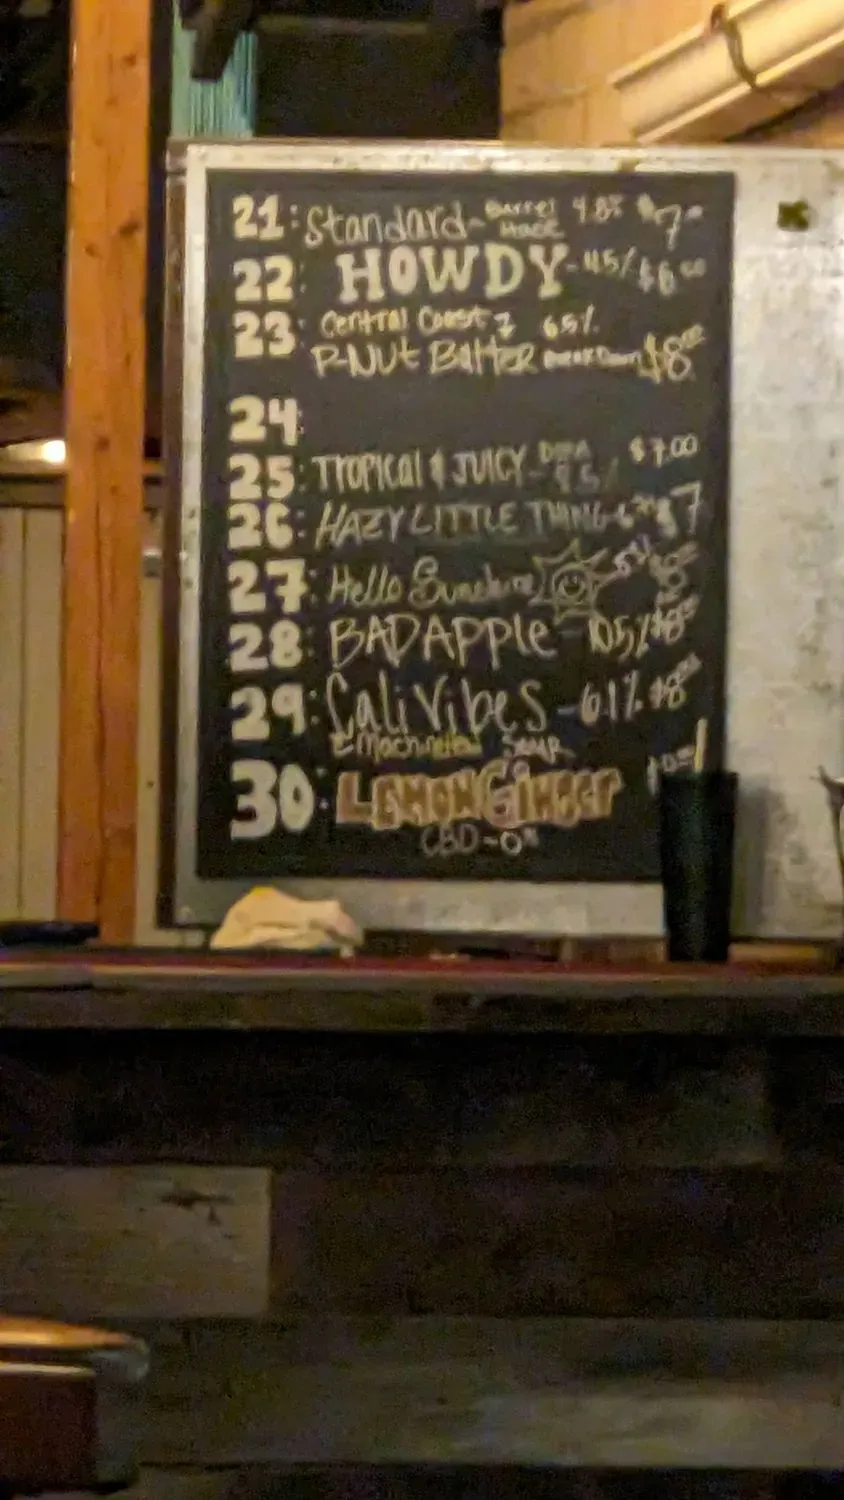 21: Standard - Barrel House 4.8% $7
22: HOWDY - 4.5% $6.00
23: Central Coast 6.5%
P-NUt BUttER $8.00
24:
25: TROPICAL & JUICY - DIPA 8.5% $7.00
26: HAZY LITTLE THING $7
27: Hello Sunshine 5%
28: BAD APPle - 10.5% $8.00
29: Cali Vibes - 6.1% $8.00
30: LEMON GiNger
CBD - 0%